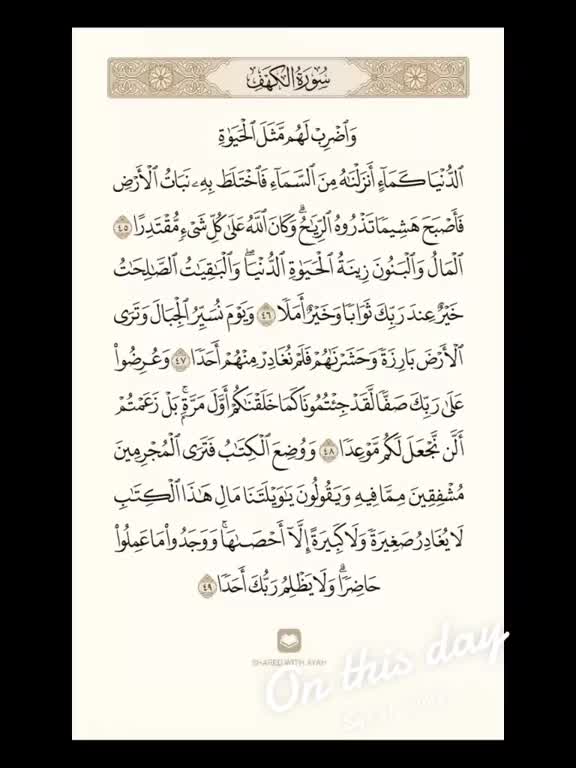 سُورَةُ الكَهْفِ
وَٱضْرِبْ لَهُم مَّثَلَ ٱلْحَيَوٰةِ
ٱلدُّنْيَا كَمَآءٍ أَنزَلْنَٰهُ مِنَ ٱلسَّمَآءِ فَٱخْتَلَطَ بِهِۦ نَبَاتُ ٱلْأَرْضِ
فَأَصْبَحَ هَشِيمًا تَذْرُوهُ ٱلرِّيَٰحُ ۗ وَكَانَ ٱللَّهُ عَلَىٰ كُلِّ شَىْءٍ مُّقْتَدِرًا ٤٥
ٱلْمَالُ وَٱلْبَنُونَ زِينَةُ ٱلْحَيَوٰةِ ٱلدُّنْيَا ۖ وَٱلْبَٰقِيَٰتُ ٱلصَّٰلِحَٰتُ
خَيْرٌ عِندَ رَبِّكَ ثَوَابًا وَخَيْرٌ أَمَلًا ٤٦ وَيَوْمَ نُسَيِّرُ ٱلْجِبَالَ وَتَرَى
ٱلْأَرْضَ بَارِزَةً وَحَشَرْنَٰهُمْ فَلَمْ نُغَادِرْ مِنْهُمْ أَحَدًا ٤٧ وَعُرِضُوا۟
عَلَىٰ رَبِّكَ صَفًّا لَّقَدْ جِئْتُمُونَا كَمَا خَلَقْنَٰكُمْ أَوَّلَ مَرَّةٍۭ ۚ بَلْ زَعَمْتُمْ
أَلَّن نَّجْعَلَ لَكُم مَّوْعِدًا ٤٨ وَوُضِعَ ٱلْكِتَٰبُ فَتَرَى ٱلْمُجْرِمِينَ
مُشْفِقِينَ مِمَّا فِيهِ وَيَقُولُونَ يَٰوَيْلَتَنَا مَالِ هَٰذَا ٱلْكِتَٰبِ
لَا يُغَادِرُ صَغِيرَةً وَلَا كَبِيرَةً إِلَّآ أَحْصَىٰهَا ۚ وَوَجَدُوا۟ مَا عَمِلُوا۟
حَاضِرًا ۗ وَلَا يَظْلِمُ رَبُّكَ أَحَدًا ٤٩
SHARED WITH AYAH
On this day